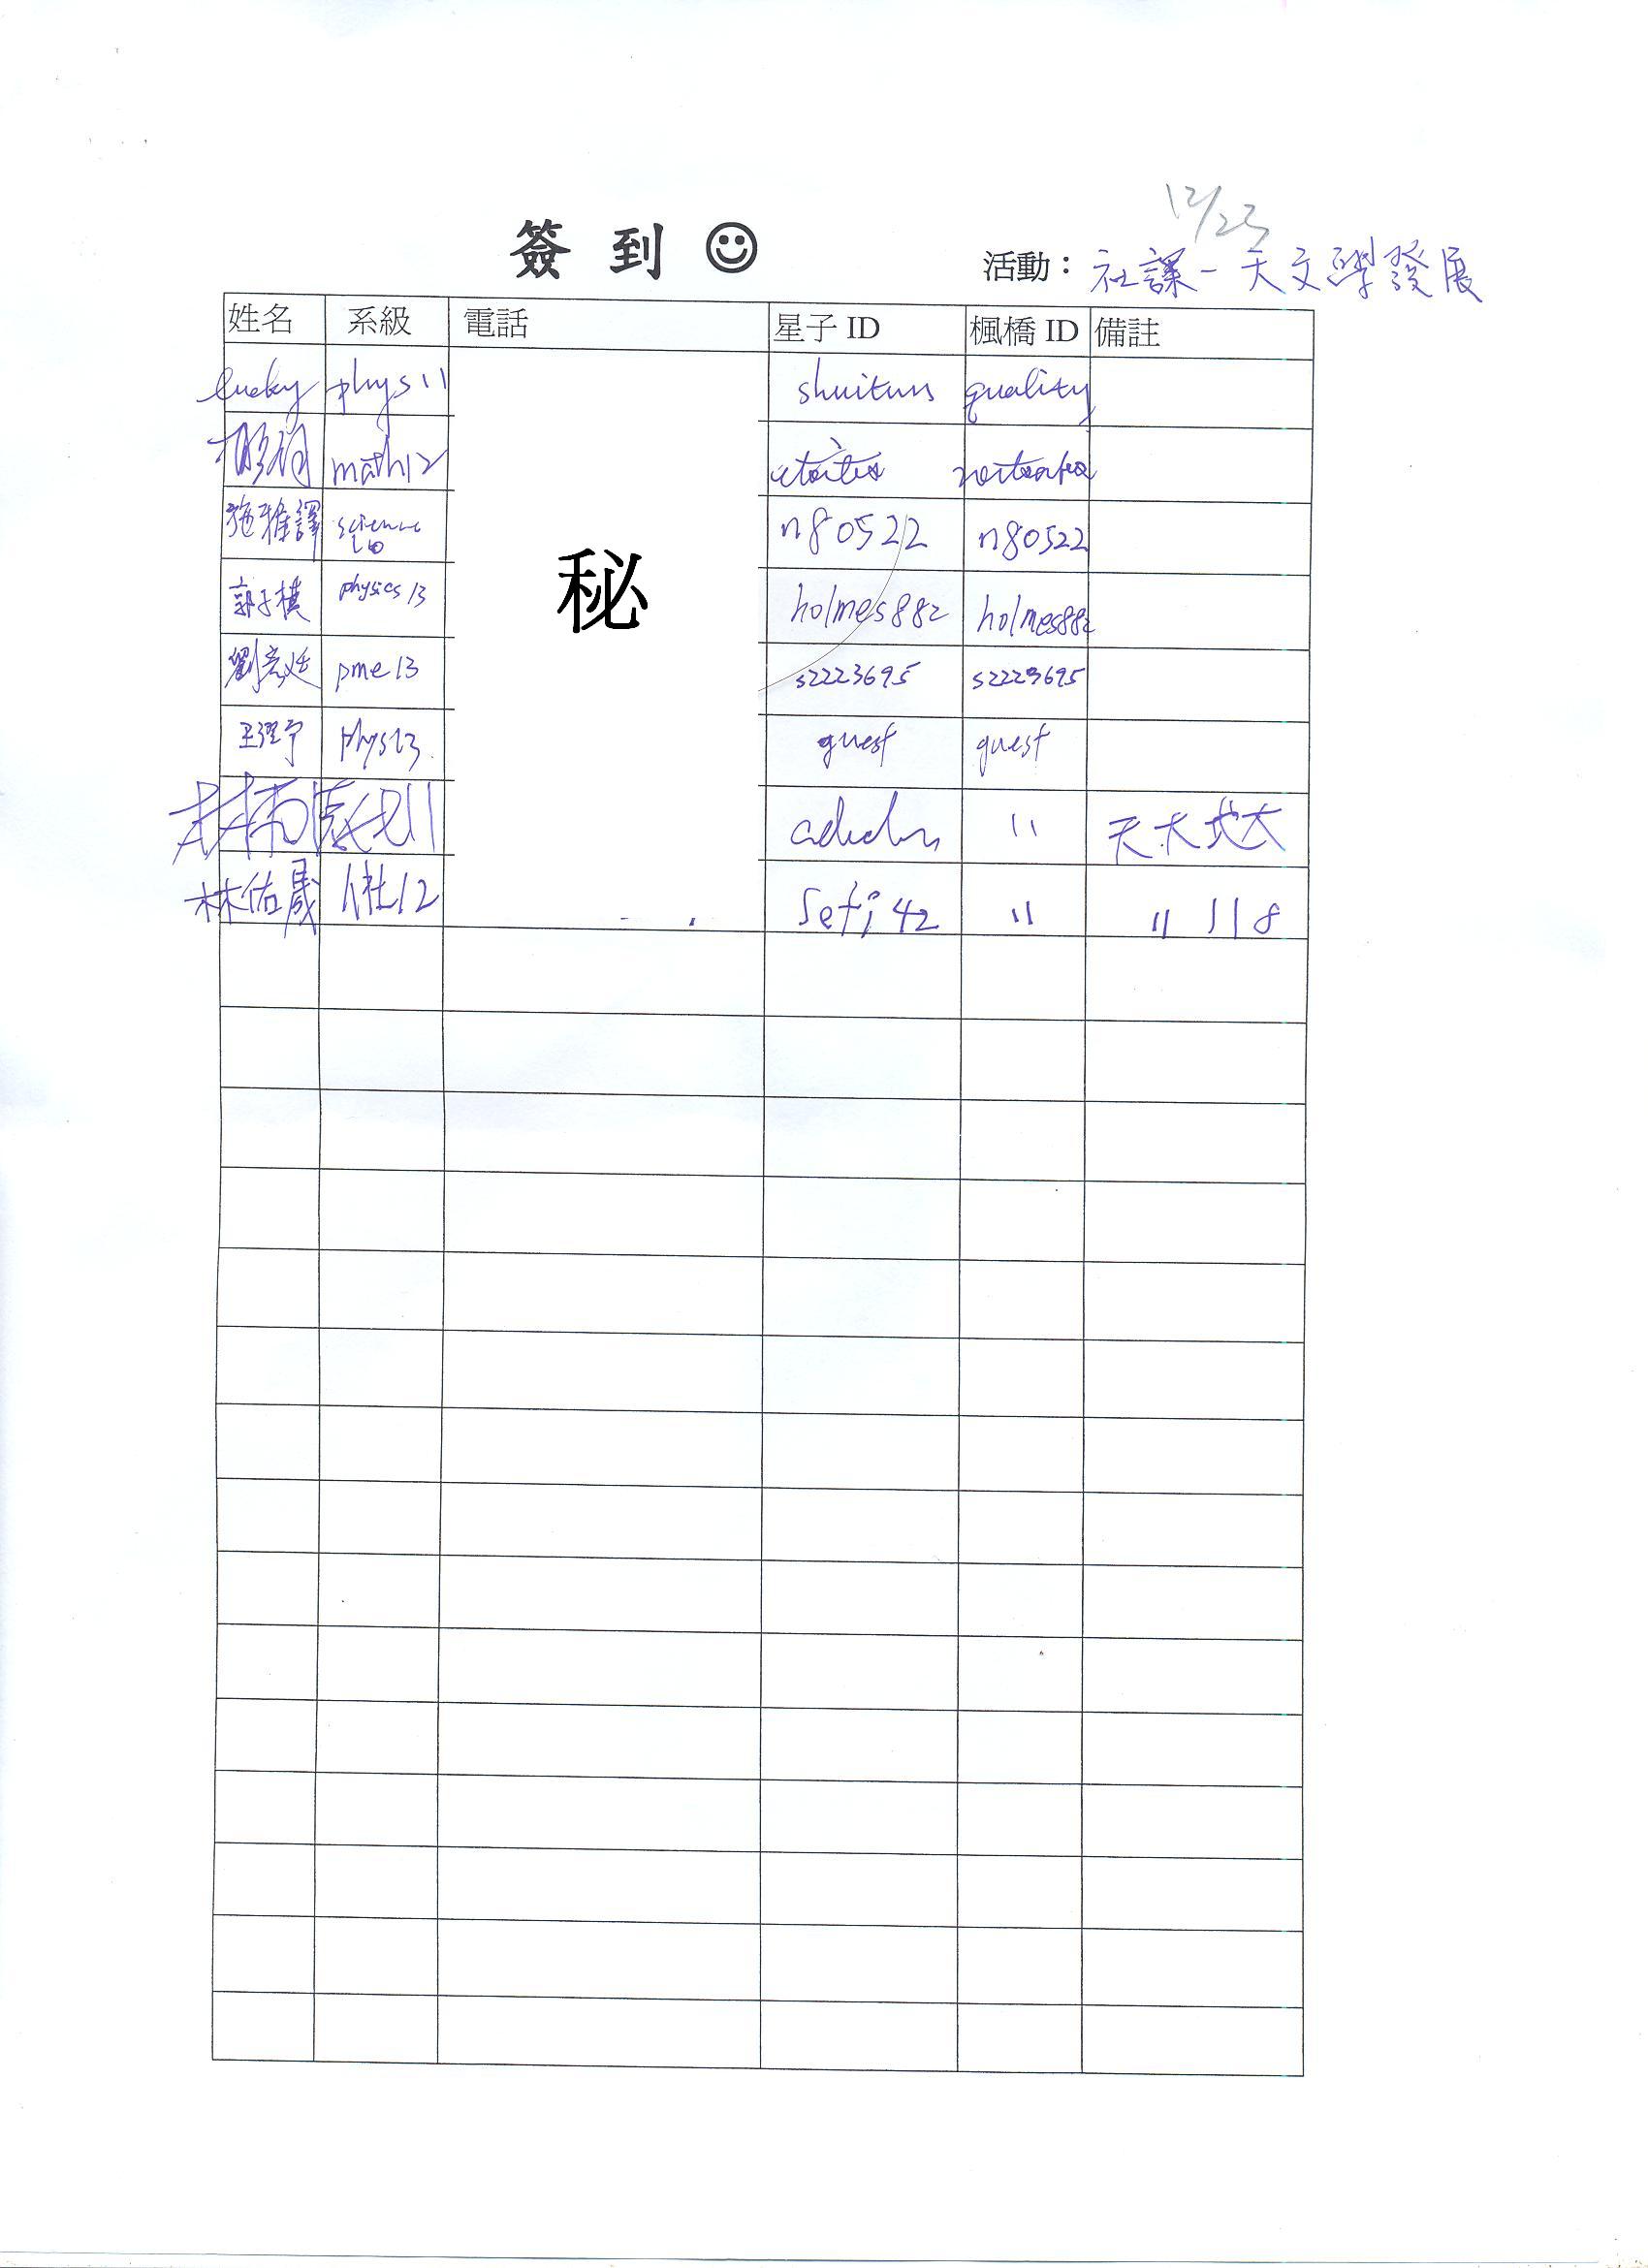 12/23
簽 到 ☺
活動：社課－天文學發展
姓名 系級 電話 星子 ID 楓橋 ID 備註
lucky phys11 shuituns quality
math12
施雅譯 science 10 n80522 n80522
秘
郭子棋 physics 13 holmes882 holmes882
劉彥廷 pme13 s2223695 s2223695
王澤宇 phys13 guest guest
林 11 " 天大地大
林佑晟 人社12 seti42 " " 118